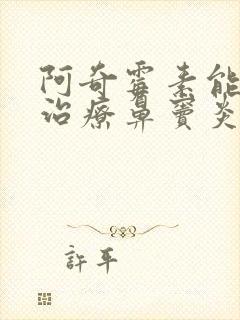 阿奇霉素能
治療鼻竇炎
許平